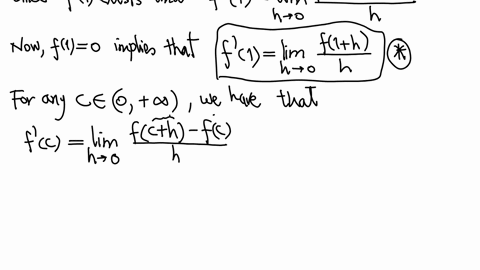 h→0 h
Now, f(1)=0 implies that f'(1) = lim h→0 f(1+h)/h *
For any c∈(0,+∞), we have that
f'(c) = lim h→0 (f(c+h) - f(c))/h